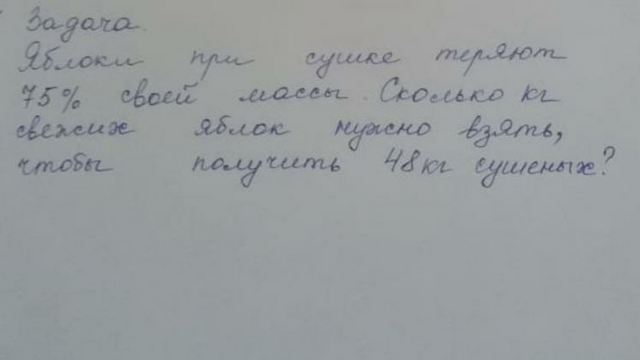 Задача.
Яблоки при сушке теряют
75% своей массы. Сколько кг
свежих яблок нужно взять,
чтобы получить 48кг сушеных?